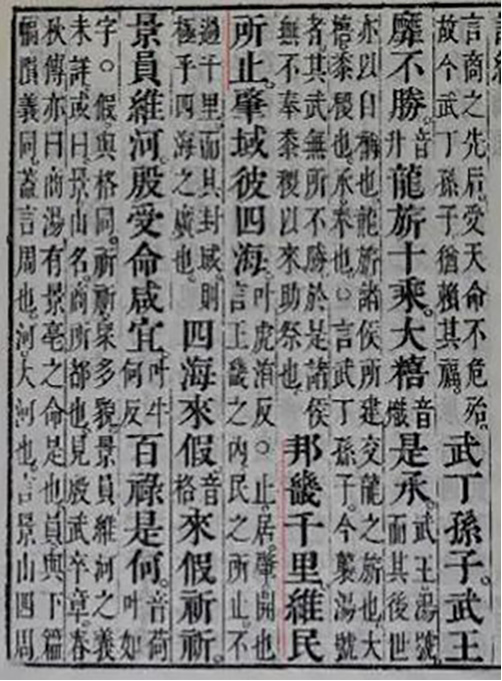 言商之先后。受天命不危殆。
故今武丁孫子猶賴其福。
武丁孫子。武王
靡不勝。音升龍旂十乘。大糦音熾是承。武王湯號。
而其後世
亦以自稱也。龍旂諸侯所建交龍之旂也。大
糦黍稷也。承奉也。○言武丁孫子。今襲湯號
者。其武無所不勝。於是諸侯
無不奉黍稷以來助祭也。
邦畿千里。維民
所止。肇域彼四海。叶虎洧反。○止居。肇開也
言王畿之內。民之所止。不
過千里。而其封域。則
極乎四海之廣也。
四海來假。音格來假祈祈。
景員維河。殷受命咸宜。叶牛何反百祿是何。音荷叶如
字。○假與格同。祈祈。眾多貌。景員維河之義
未詳。或曰。景山名。商所都也。見殷武卒章。春
秋傳亦曰。商湯有景亳之命是也。員與下篇
幅隕義同。蓋言周也。河大河也。言景山四周